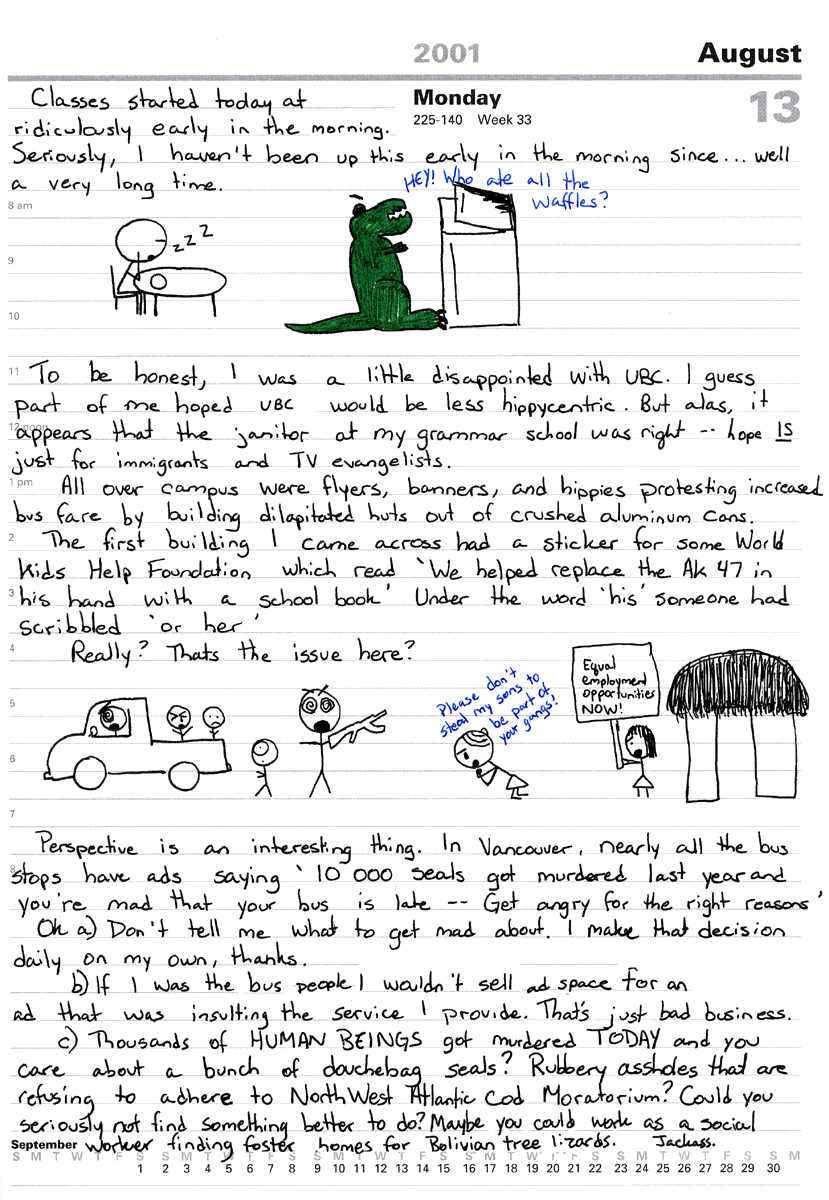 2001 August
Classes started today at
Monday 13
ridiculously early in the morning.
225-140 Week 33
Seriously, I haven't been up this early in the morning since... well
a very long time.
HEY! Who ate all the
waffles?
8 am
z z z
9
10
11 To be honest, I was a little disappointed with UBC. I guess
part of me hoped UBC would be less hippycentric. But alas, it
12 noon
appears that the janitor at my grammar school was right -- hope IS
just for immigrants and TV evangelists.
1 pm All over campus were flyers, banners, and hippies protesting increased
bus fare by building dilapitated huts out of crushed aluminum cans.
2 The first building I came across had a sticker for some World
Kids Help Foundation which read 'We helped replace the AK 47 in
3 his hand with a school book' Under the word 'his' someone had
scribbled 'or her'
4 Really? Thats the issue here?
Please don't
steal my sons to
be part of
your gangs!
Equal
employment
opportunities
NOW!
5
6
7
Perspective is an interesting thing. In Vancouver, nearly all the bus
8
stops have ads saying '10 000 seals got murdered last year and
you're mad that your bus is late -- Get angry for the right reasons'
Ok a) Don't tell me what to get mad about. I make that decision
daily on my own, thanks.
b) If I was the bus people I wouldn't sell ad space for an
ad that was insulting the service I provide. That's just bad business.
c) Thousands of HUMAN BEINGS got murdered TODAY and you
care about a bunch of douchebag seals? Rubbery assholes that are
refusing to adhere to NorthWest Atlantic Cod Moratorium? Could you
seriously not find something better to do? Maybe you could work as a social
worker finding foster homes for Bolivian tree lizards. Jackass.
September
S M T W T F S S M T W T F S S M T W T F S S M T W T F S S M T W T F S S M
1 2 3 4 5 6 7 8 9 10 11 12 13 14 15 16 17 18 19 20 21 22 23 24 25 26 27 28 29 30